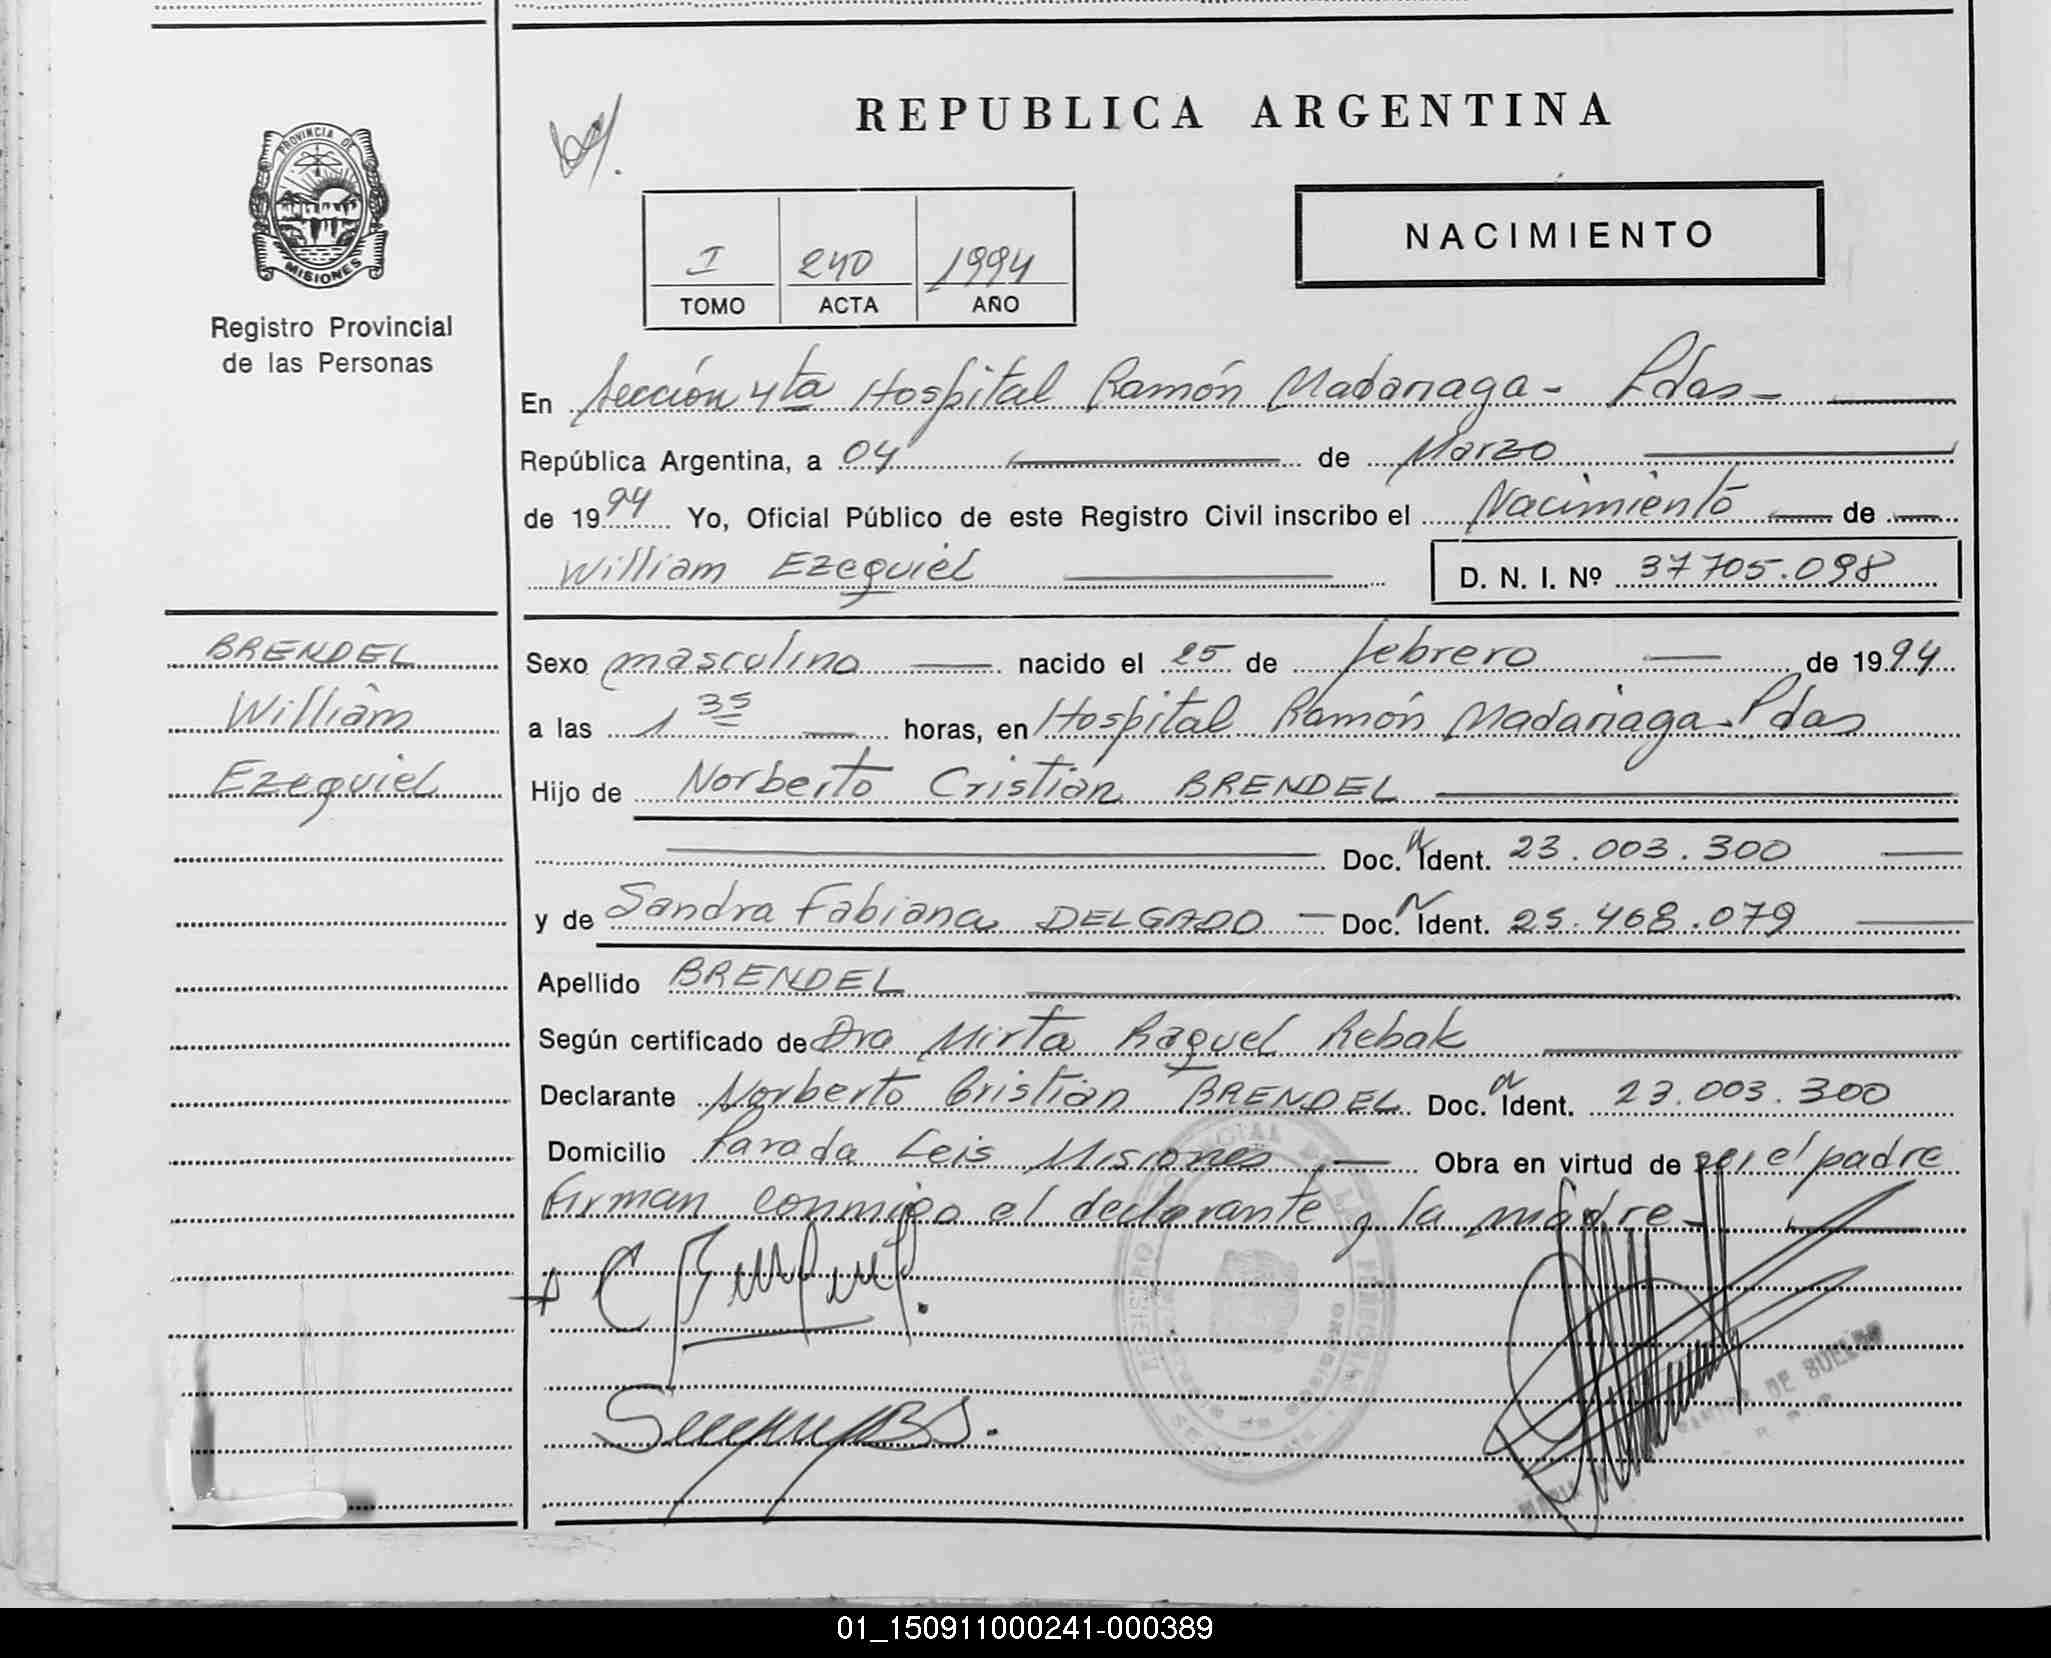 REPUBLICA ARGENTINA
PROVINCIA DE
MISIONES
Registro Provincial
de las Personas
I 240 1994
TOMO ACTA AÑO
NACIMIENTO
En Sección 4ta Hospital Ramón Madariaga - Pdas -
República Argentina, a 04 de Marzo
de 1994 Yo, Oficial Público de este Registro Civil inscribo el Nacimiento de
William Ezequiel D. N. I. Nº 37705.098
BRENDEL
William
Ezequiel
Sexo masculino nacido el 25 de febrero de 1994
a las 1 35 horas, en Hospital Ramón Madariaga - Pdas
Hijo de Norberto Cristian BRENDEL
Doc. Ident. 23.003.300
y de Sandra Fabiana DELGADO - Doc. Ident. 25.468.079
Apellido BRENDEL
Según certificado de Dra Mirta Raquel Rebak
Declarante Norberto Cristian BRENDEL Doc. Ident. 23.003.300
Domicilio Parada Leis Misiones Obra en virtud de ser el padre
Firman conmigo el declarante y la madre -
DE SUELDO
01_150911000241-000389